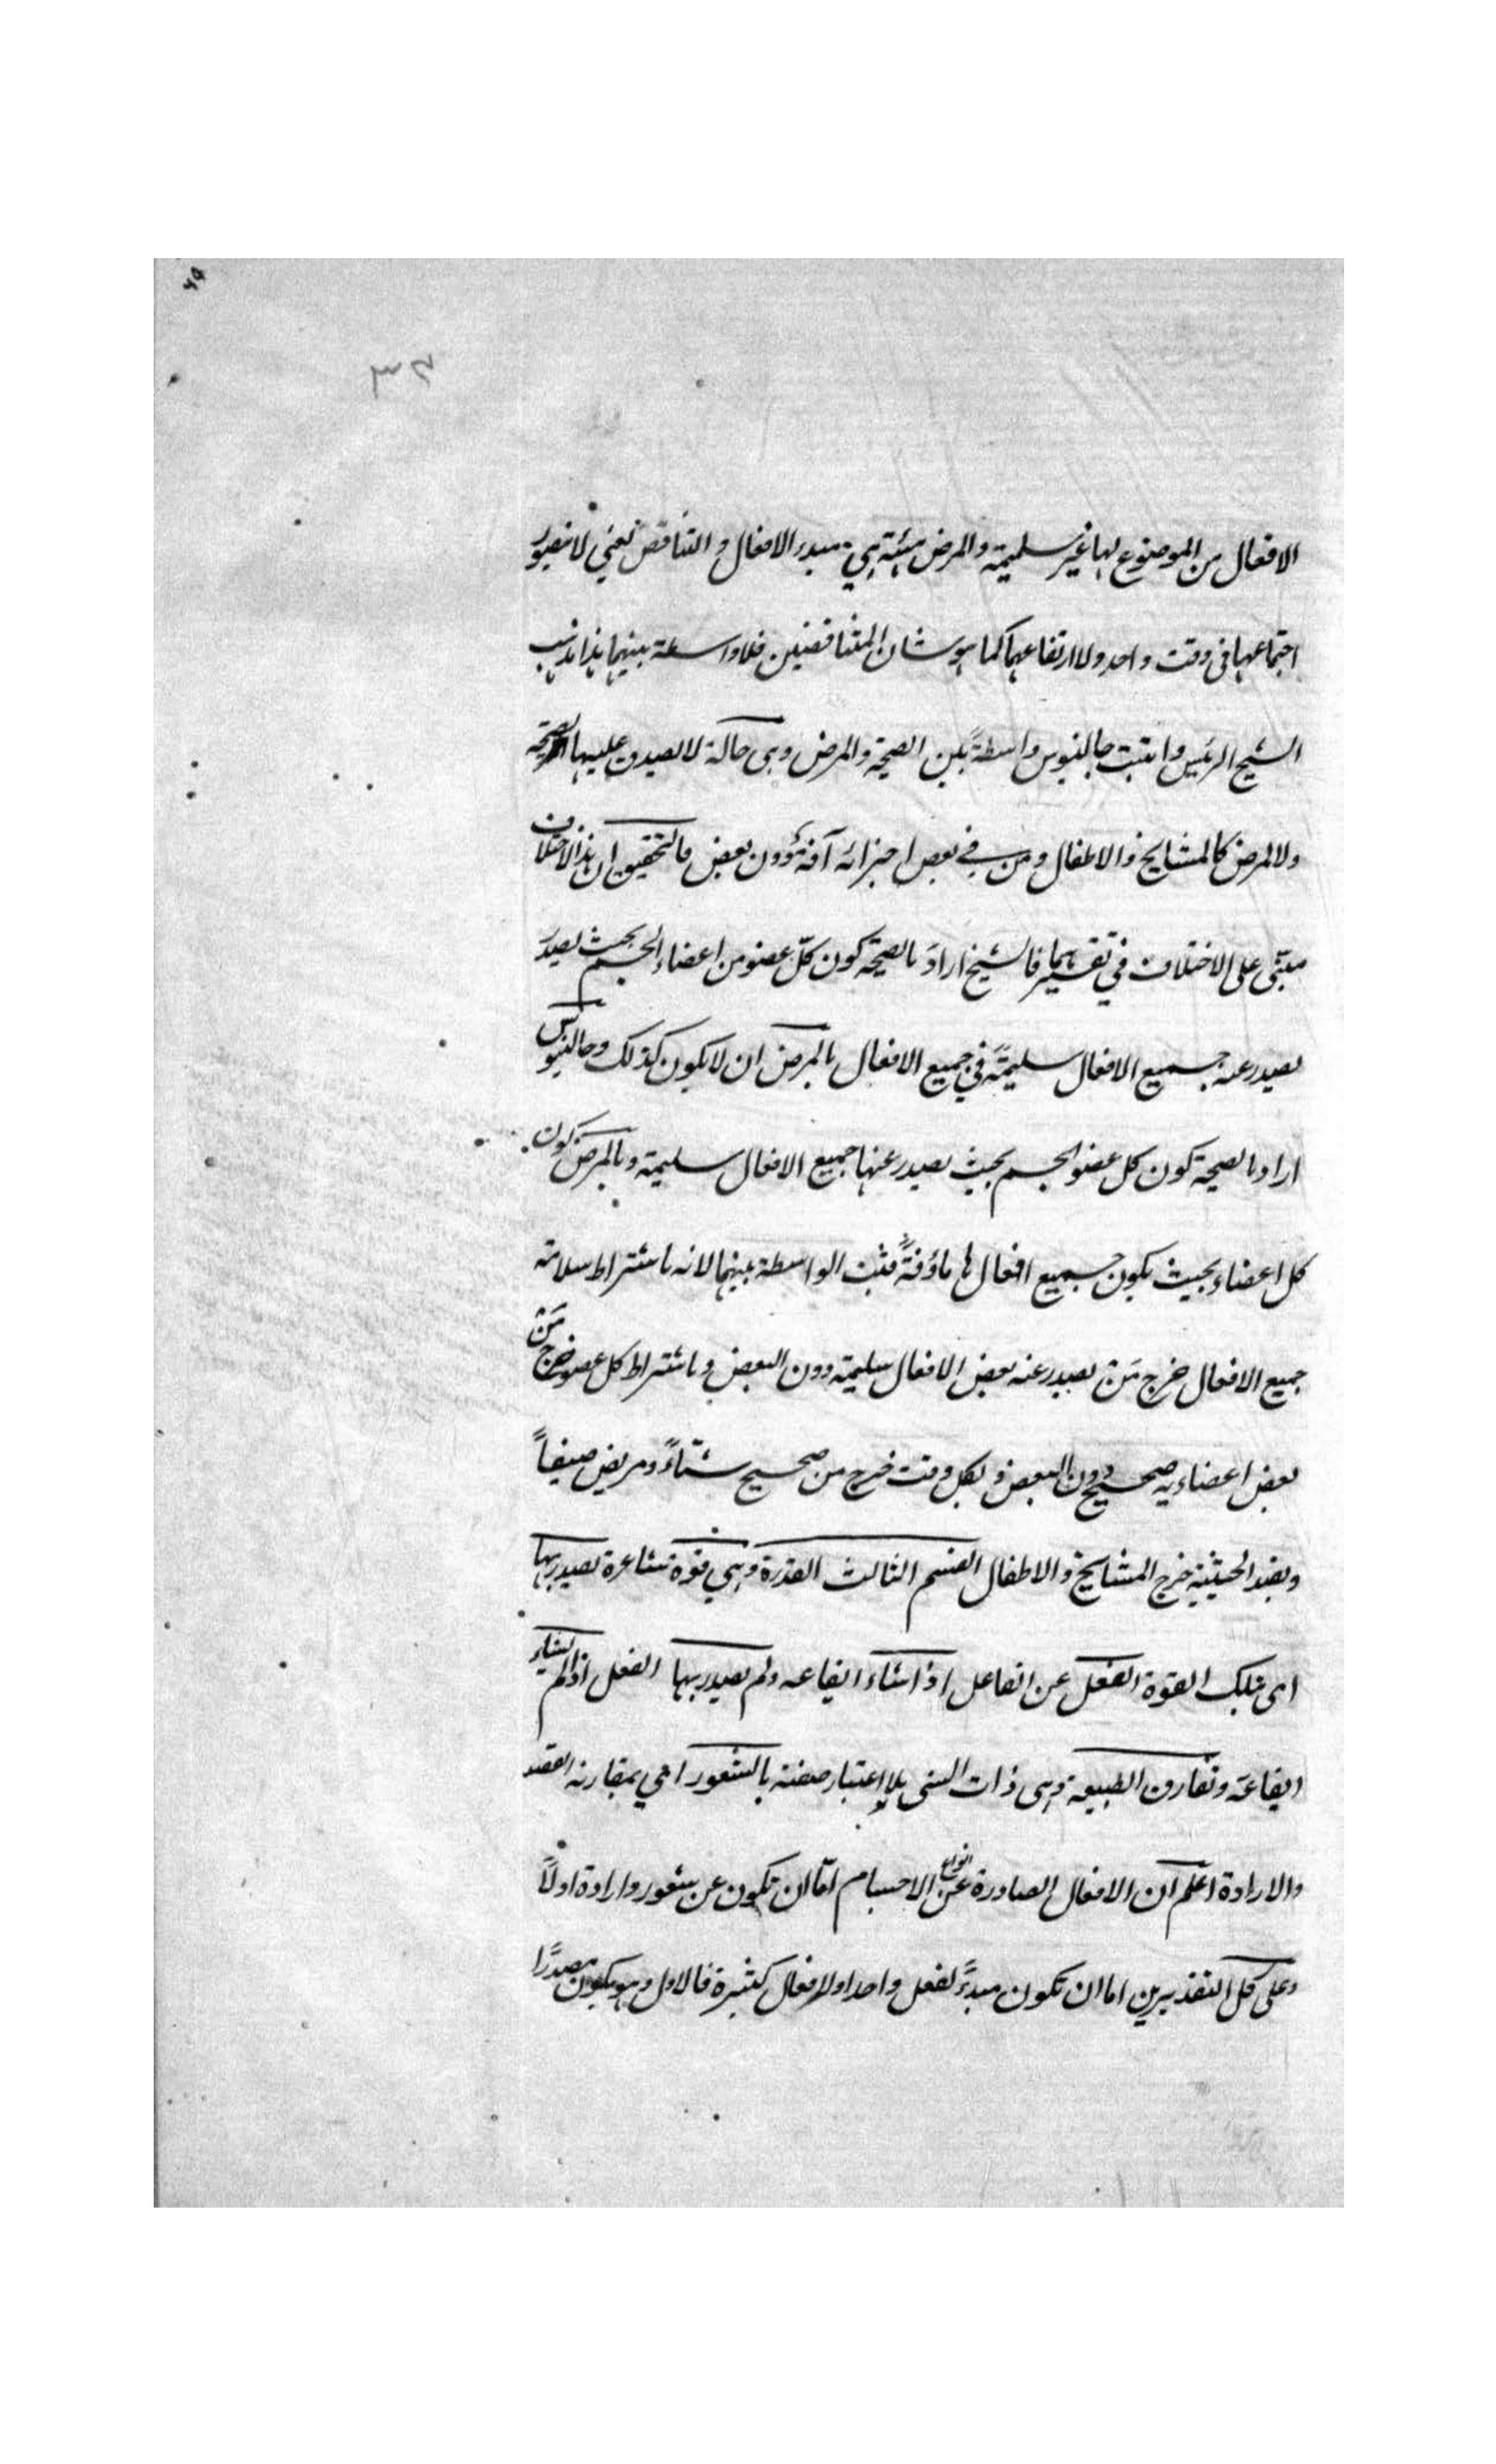 ٦٥
٣٣
الافعال من الموضوع لها غير سليمة والمرض هيئة هي مبدء الافعال والتناقض يعني لا يتصور
اجتماعهما في وقت واحد ولا ارتفاعهما كما هو شان المتناقضين فلا واسطة بينهما هذا مذهب
الشيخ الرئيس واثبت جالينوس واسطةً بين الصحة والمرض وهي حالة لا يصدق عليها الصحة
ولا المرض كالمشايخ والاطفال ومن في بعض اجزائه آفة دون بعض والتحقيق ان هذا الاختلاف
مبني على الاختلاف في تفسيرهما فالشيخ اراد بالصحة كون كلّ عضو من اعضاء الجسم بحيث يصدر
يصدر عنه جميع الافعال سليمةً في جميع الافعال بالمرض ان لا يكون كذلك وجالينوس
اراد بالصحة كون كل عضو الجسم بحيث يصدر عنها جميع الافعال سليمة وبالمرض كون
كل اعضاء بحيث يكون جميع افعالها ماؤفةً فثبت الواسطة بينهما لانه باشتراط سلامة
جميع الافعال خرج مَن يصدر عنه بعض الافعال سليمة دون البعض وباشتراط كل عضو خرج مَنْ
بعض اعضاءيه صحيح دون البعض و بكل وقت خرج من صحيح شتاءً ومريض صيفاً
وبقيد الحيثية خرج المشايخ والاطفال القسم الثالث القدرة وهي قوة شاعرة يصدر بها
اى بتلك القوة الفعل عن الفاعل اذا شاء ايقاعه ولم يصدر بها الفعل اذا لم يشاء
ايقاعه وتفارق الطبيعة وهى ذات الشى بلا اعتبار صفة بالشعور اي بمقارنة القصد
والارادة اعلم ان الافعال الصادرة عن انواع الاجسام امّا ان تكون عن شعور وارادة اولاً
وعلى كل التقديرين اما ان تكون مبدءً لفعل واحد او لافعال كثيرة فالاول وهو يكون مصدرًا